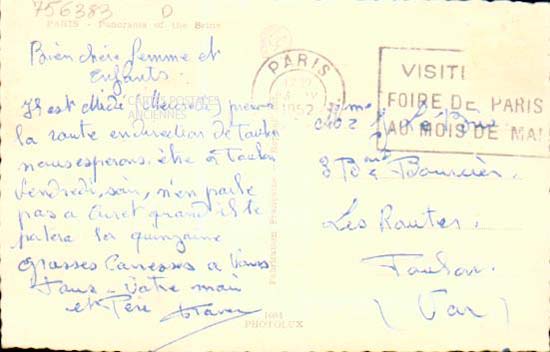 756383 D
PARIS - Panorama of the Seine
Bien chère femme et
Enfants.
Il est Midi Mercredi, prenons
la route en direction de Toulon
nous esperons être à Toulon
Vendredi, soir, n'en parle
pas a
grand il te
la quinzaine
Grosses Caresses a Vous
Tous - Votre mari
et Père
CARTES POSTALES
ANCIENNES
PARIS
1952
VISIT
FOIRE DE PARIS
AU MOIS DE MAI
3 Bd
Les Routes.
Toulon.
(Var)
Fabrication Française
1081
PHOTOLUX